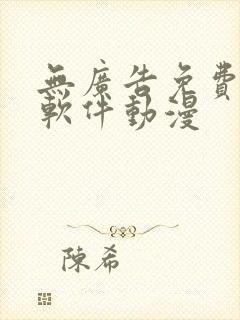 無廣告免費
軟件動漫
陳希